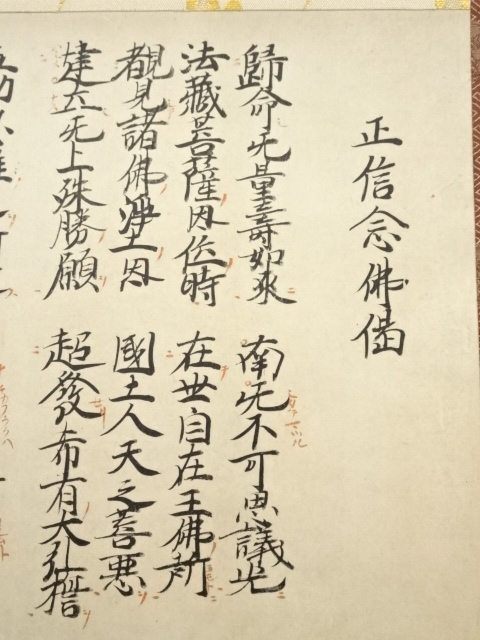 正信念佛偈
歸命无量壽如來　南无不可思議光
法藏菩薩因位時　在世自在王佛所
覩見諸佛淨土因　國土人天之善惡
建立无上殊勝願　超發希有大弘誓